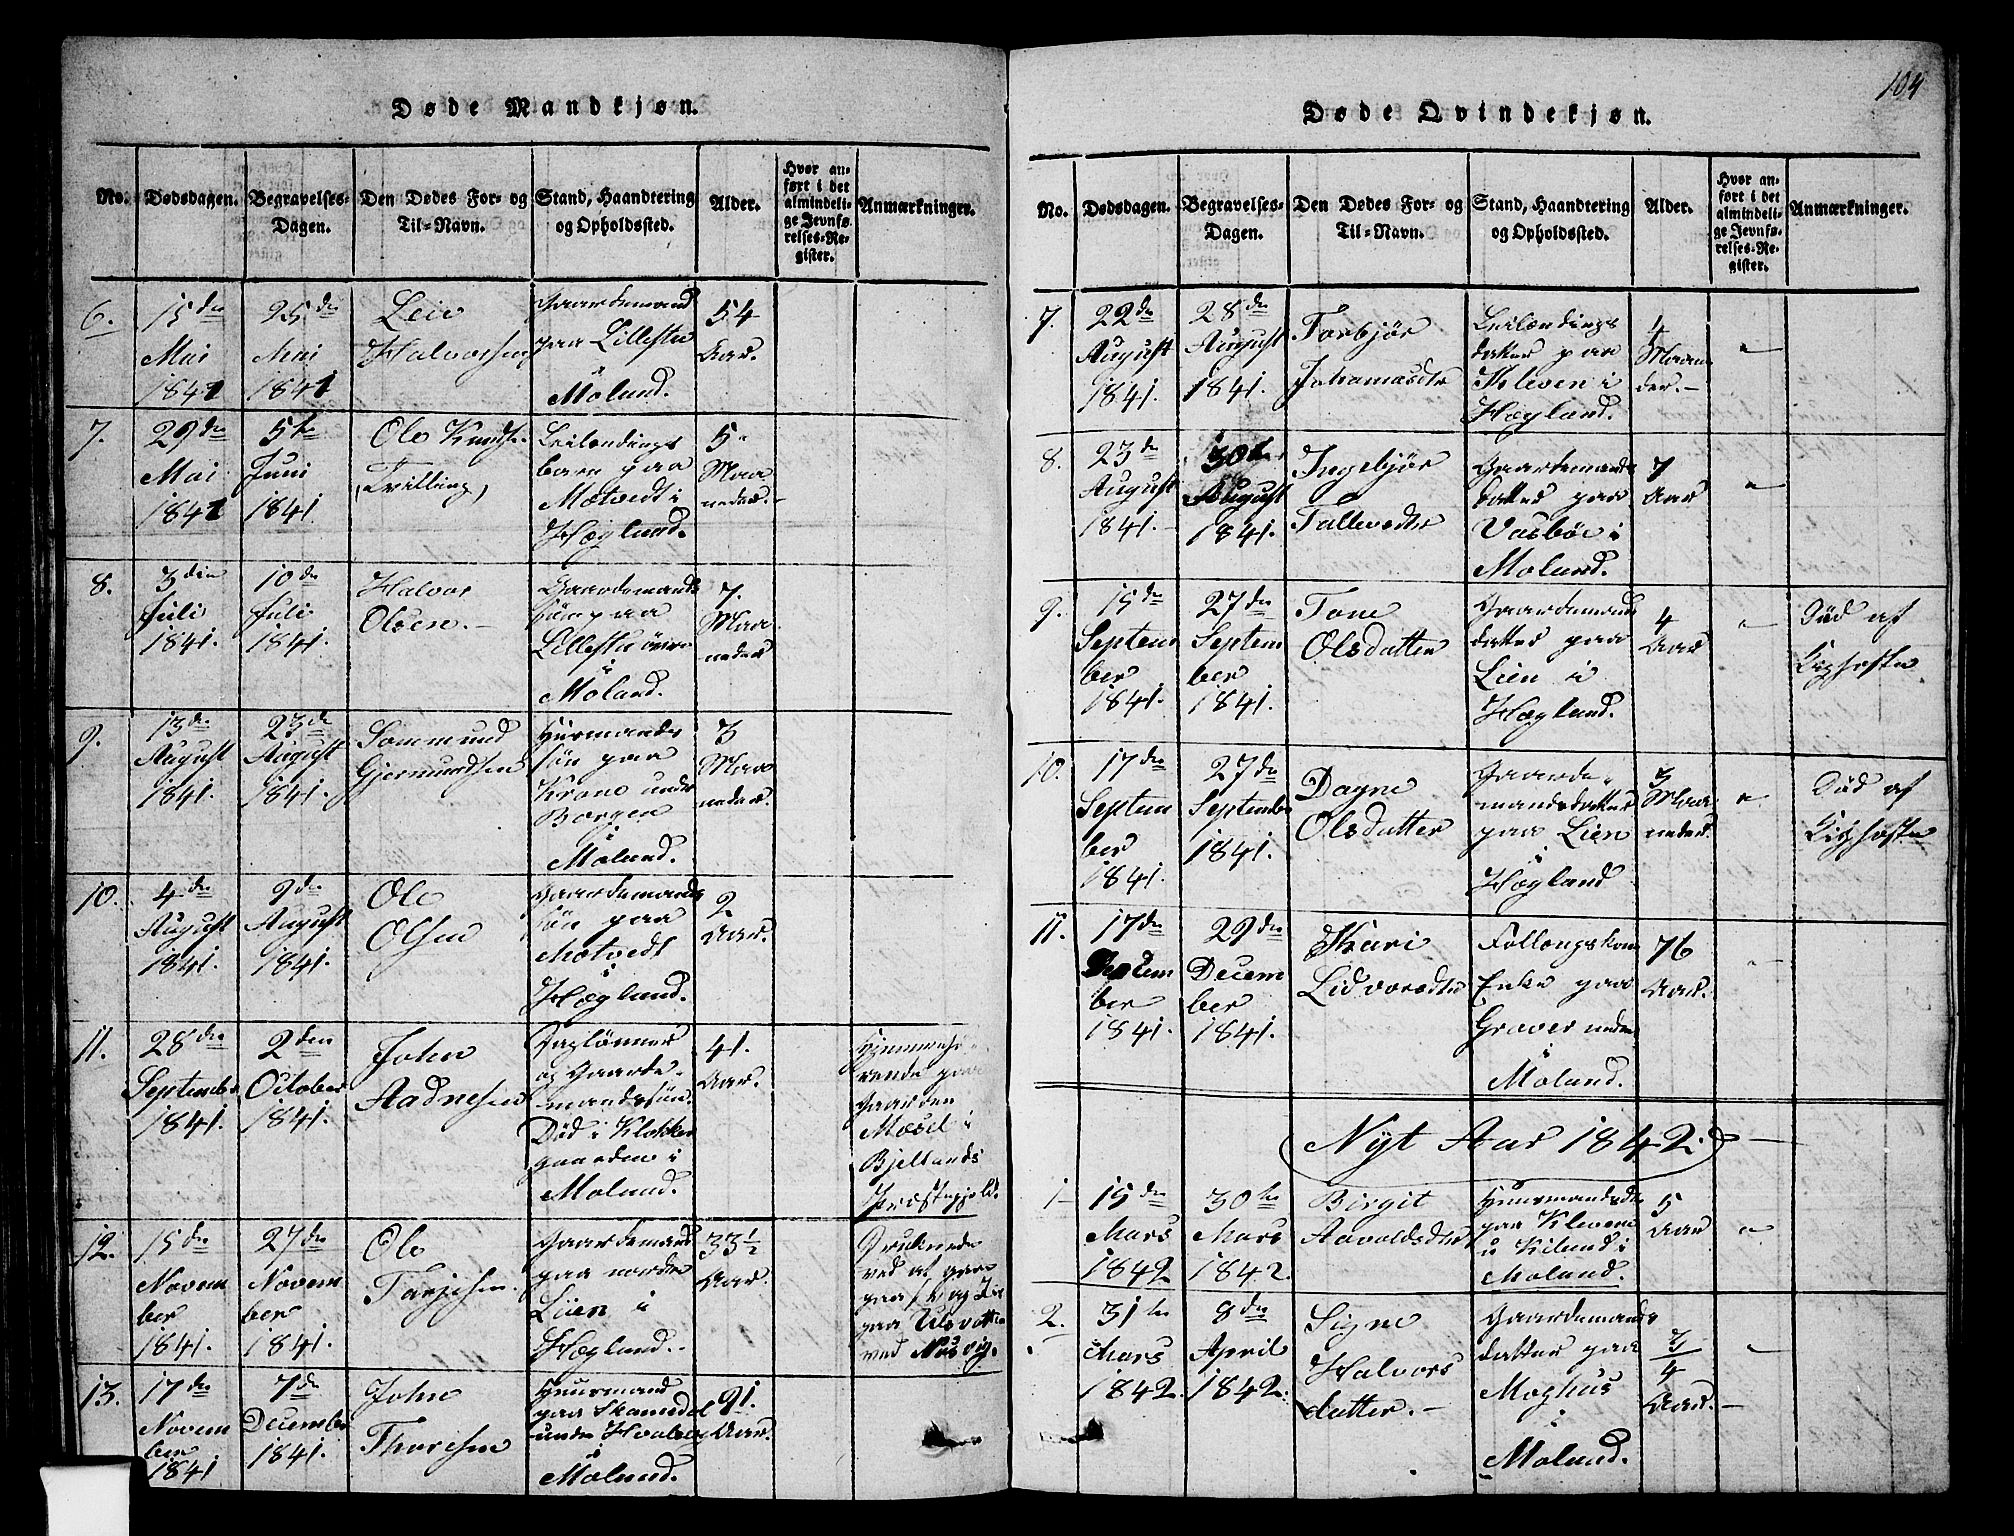 Døde Mandkjøn.
No. Dødsdagen. Begravelses-Dagen. Den Dødes For- og Til-Navn. Stand, Haandtering og Opholdssted. Alder. Hvor anført i det almindelige Jevnførelses-Register. Anmærkninger.
6. 15de Mai 1841 25de Mai 1841 Leiv Halvorsen Gaardemand paa Lillestu i Moland. 54 Aar.
7. 29de Mai 1841 5te Juni 1841 Ole Knudsen (Tvilling) Leilændings barn paa Motvedt i Høgland. 5 Maaneder.
8. 3die Juli 1841. 10de Juli 1841. Halvor Olsen. Gaardemands søn paa Lillestu i Moland. 7. Maaneder
9. 13de August 1841. 23de August 1841. Sommund Gjermundsen Huusmands søn paa Krone under Borgen i Moland. 3 Maaneder.
10. 4de August 1841. 9de August 1841. Ole Olsen Gaardemands søn paa Motvedt i Høgland. 2 Aar.
11. 28de September 1841. 2den October 1841. John Aadnesen Daglønner og Gaardemandssøn. Død i Klokkergaarden i Moland. 41. Aar. Hjemmehørende paa Gaarden Mosel i Bjellands Præstegjeld.
12. 15de November 1841. 27de November 1841. Ole Tarjesen Gaardemand paa nordre Lien i Høgland. 33½ Aar. Druknede ved at gaae paa ved
13. 17de November 1841 7de December 1841. John Thoresen Huusmand paa under i Moland. 91. Aar.
104
Døde Qvindekjøn.
No. Dødsdagen. Begravelses-Dagen. Den Dødes For- og Til-Navn. Stand, Haandtering og Opholdssted. Alder. Hvor anført i det almindelige Jevnførelses-Register. Anmærkninger.
7. 22de August 1841. 28de August 1841. Torbjør Johannesdtr Leilændings datter paa Kleven i Høgland. 4 Maaneder.
8. 23de August 1841. 30te August 1841. Ingebjør Tallevsdtr Gaardemands datter paa Vasbøe i Moland. 7 Aar
9. 15de September 1841. 27de September 1841. Tone Olsdatter Gaardemands datter paa Lien i Høgland. 4 Aar Død af Kighoste
10. 17de September 1841. 27de September 1841. Dagne Olsdatter Gaardemandsdatter paa Lien i Høgland 3 Maaneder. Død af Kighoste
11. 17de September 1841. 29de December 1841. Kari Lidvorsdtr Enke paa Graver nedre i Moland. 76 Aar.
Nyt Aar 1842.
1 15de Mars 1842 30te Mars 1842. Birgit Aavoldsdtr Huusmandsdtr paa Klevene u Kiland i Moland. 5 Aar
2. 31te Mars 1842. 8de April 1842. Signe Halvorsdatter. Gaardemands datter paa Moghus i Moland. 3/4 Aar.